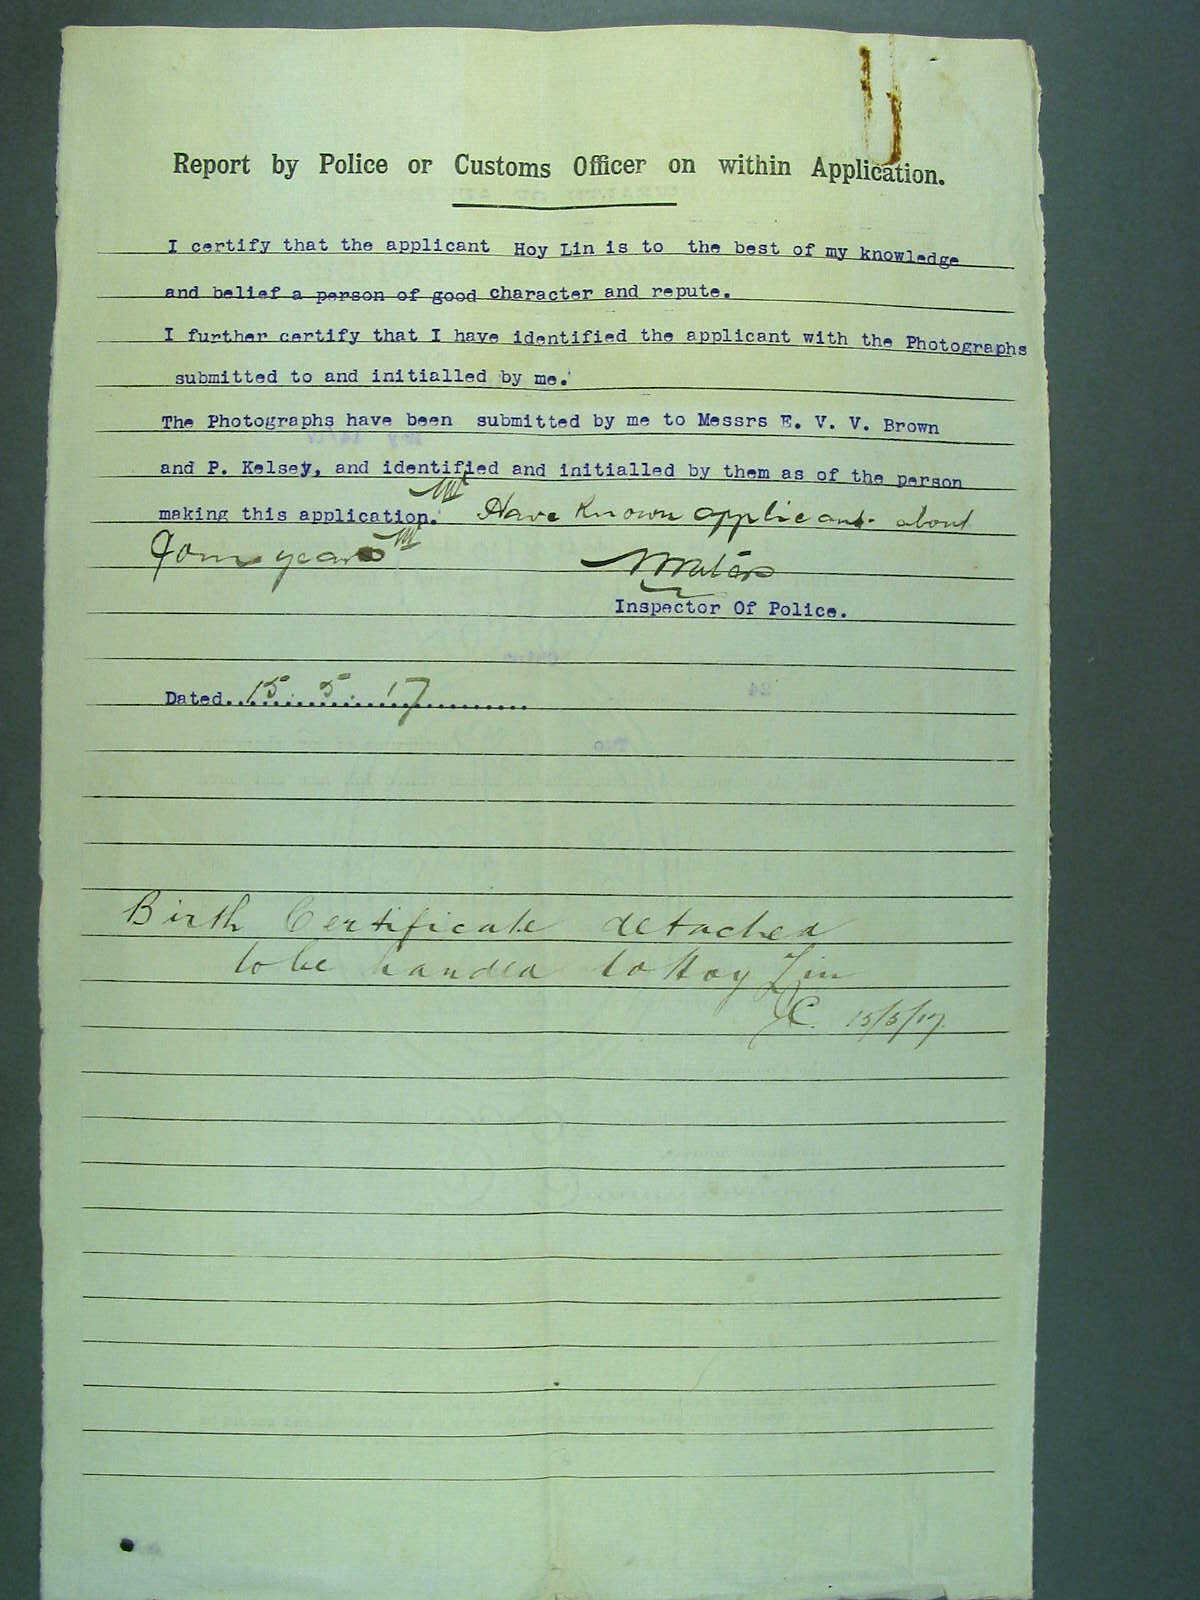 Report by Police or Customs Officer on within Application.
I certify that the applicant Hoy Lin is to the best of my knowledge
and belief a person of good character and repute.
I further certify that I have identified the applicant with the Photographs
submitted to and initialled by me.
The Photographs have been submitted by me to Messrs E. V. V. Brown
and P. Kelsey, and identified and initialled by them as of the person
making this application. Have known applicant about
four years
Inspector Of Police.
Dated. 15. 5. 17
Birth Certificate detached
to be handed to Hoy Lin
15/5/17.